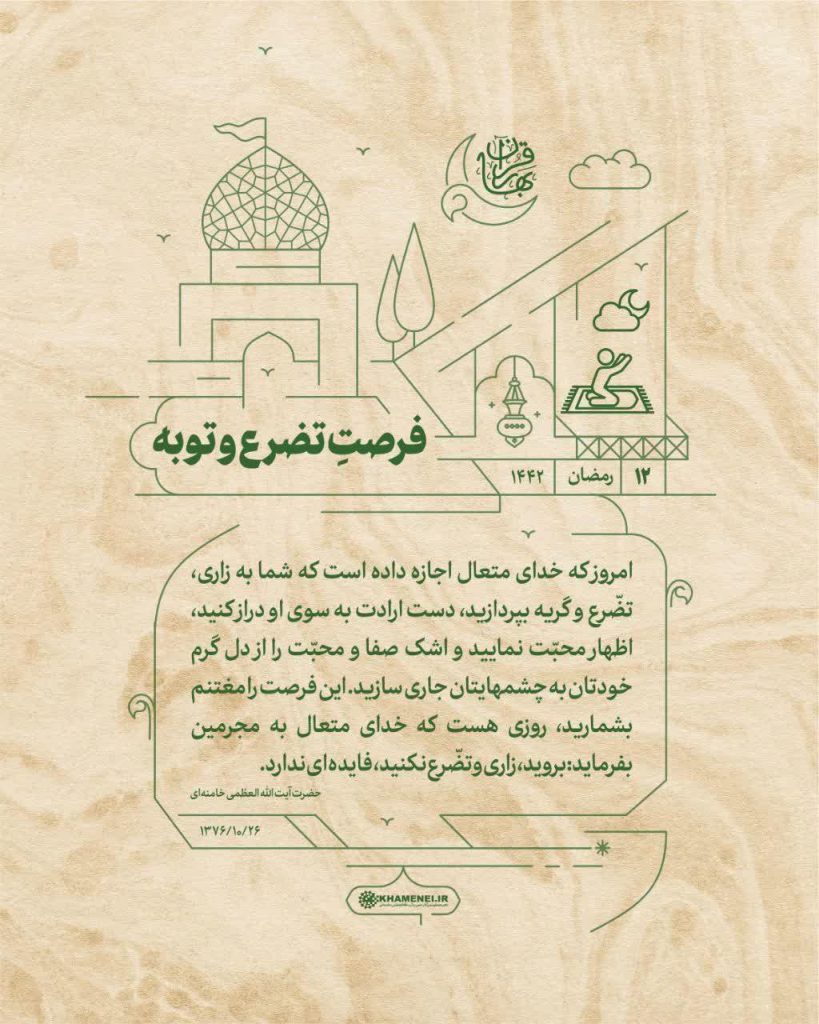 بهار قرآن
فرصتِ تضرع و توبه
۱۲ رمضان ۱۴۴۲
امروز که خدای متعال اجازه داده است که شما به زاری،
تضّرع و گریه بپردازید، دست ارادت به سوی او دراز کنید،
اظهار محبّت نمایید و اشک صفا و محبّت را از دل گرم
خودتان به چشمهایتان جاری سازید. این فرصت را مغتنم
بشمارید، روزی هست که خدای متعال به مجرمین
بفرماید: بروید، زاری و تضّرع نکنید، فایده‌ای ندارد.
حضرت آیت الله العظمی خامنه‌ای
۱۳۷۶/۱۰/۲۶
KHAMENEI.IR